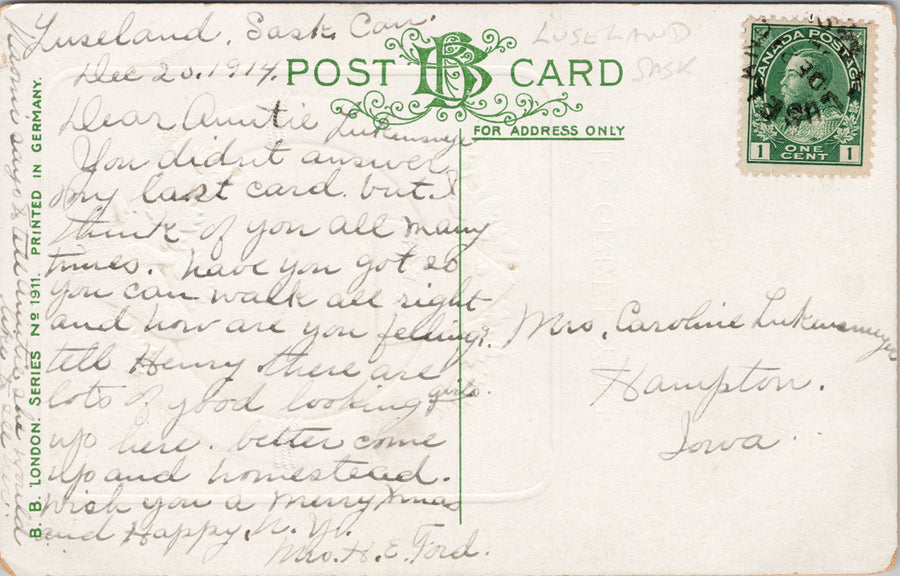 Luseland, Sask. Can.
Dec 20. 1914.
Dear Auntie Lukensmeyer
You didn't answer
my last card. but I
think of you all many
times. have you got so
you can walk all right
and how are you feeling?
tell Henry there are
lots of good looking girls.
up here. better come
up and homestead.
wish you a Merry Xmas
and Happy. N. Yr.
Mrs. H. E. Ford.
Naomi says to tell auntie she would
like to see her.
B. B. LONDON. SERIES Nº 1911. PRINTED IN GERMANY.
POST BB CARD
FOR ADDRESS ONLY
LUSELAND
SASK
CANADA POSTAGE
1 ONE CENT 1
Mrs. Caroline Lukensmeyer
Hampton.
Iowa.